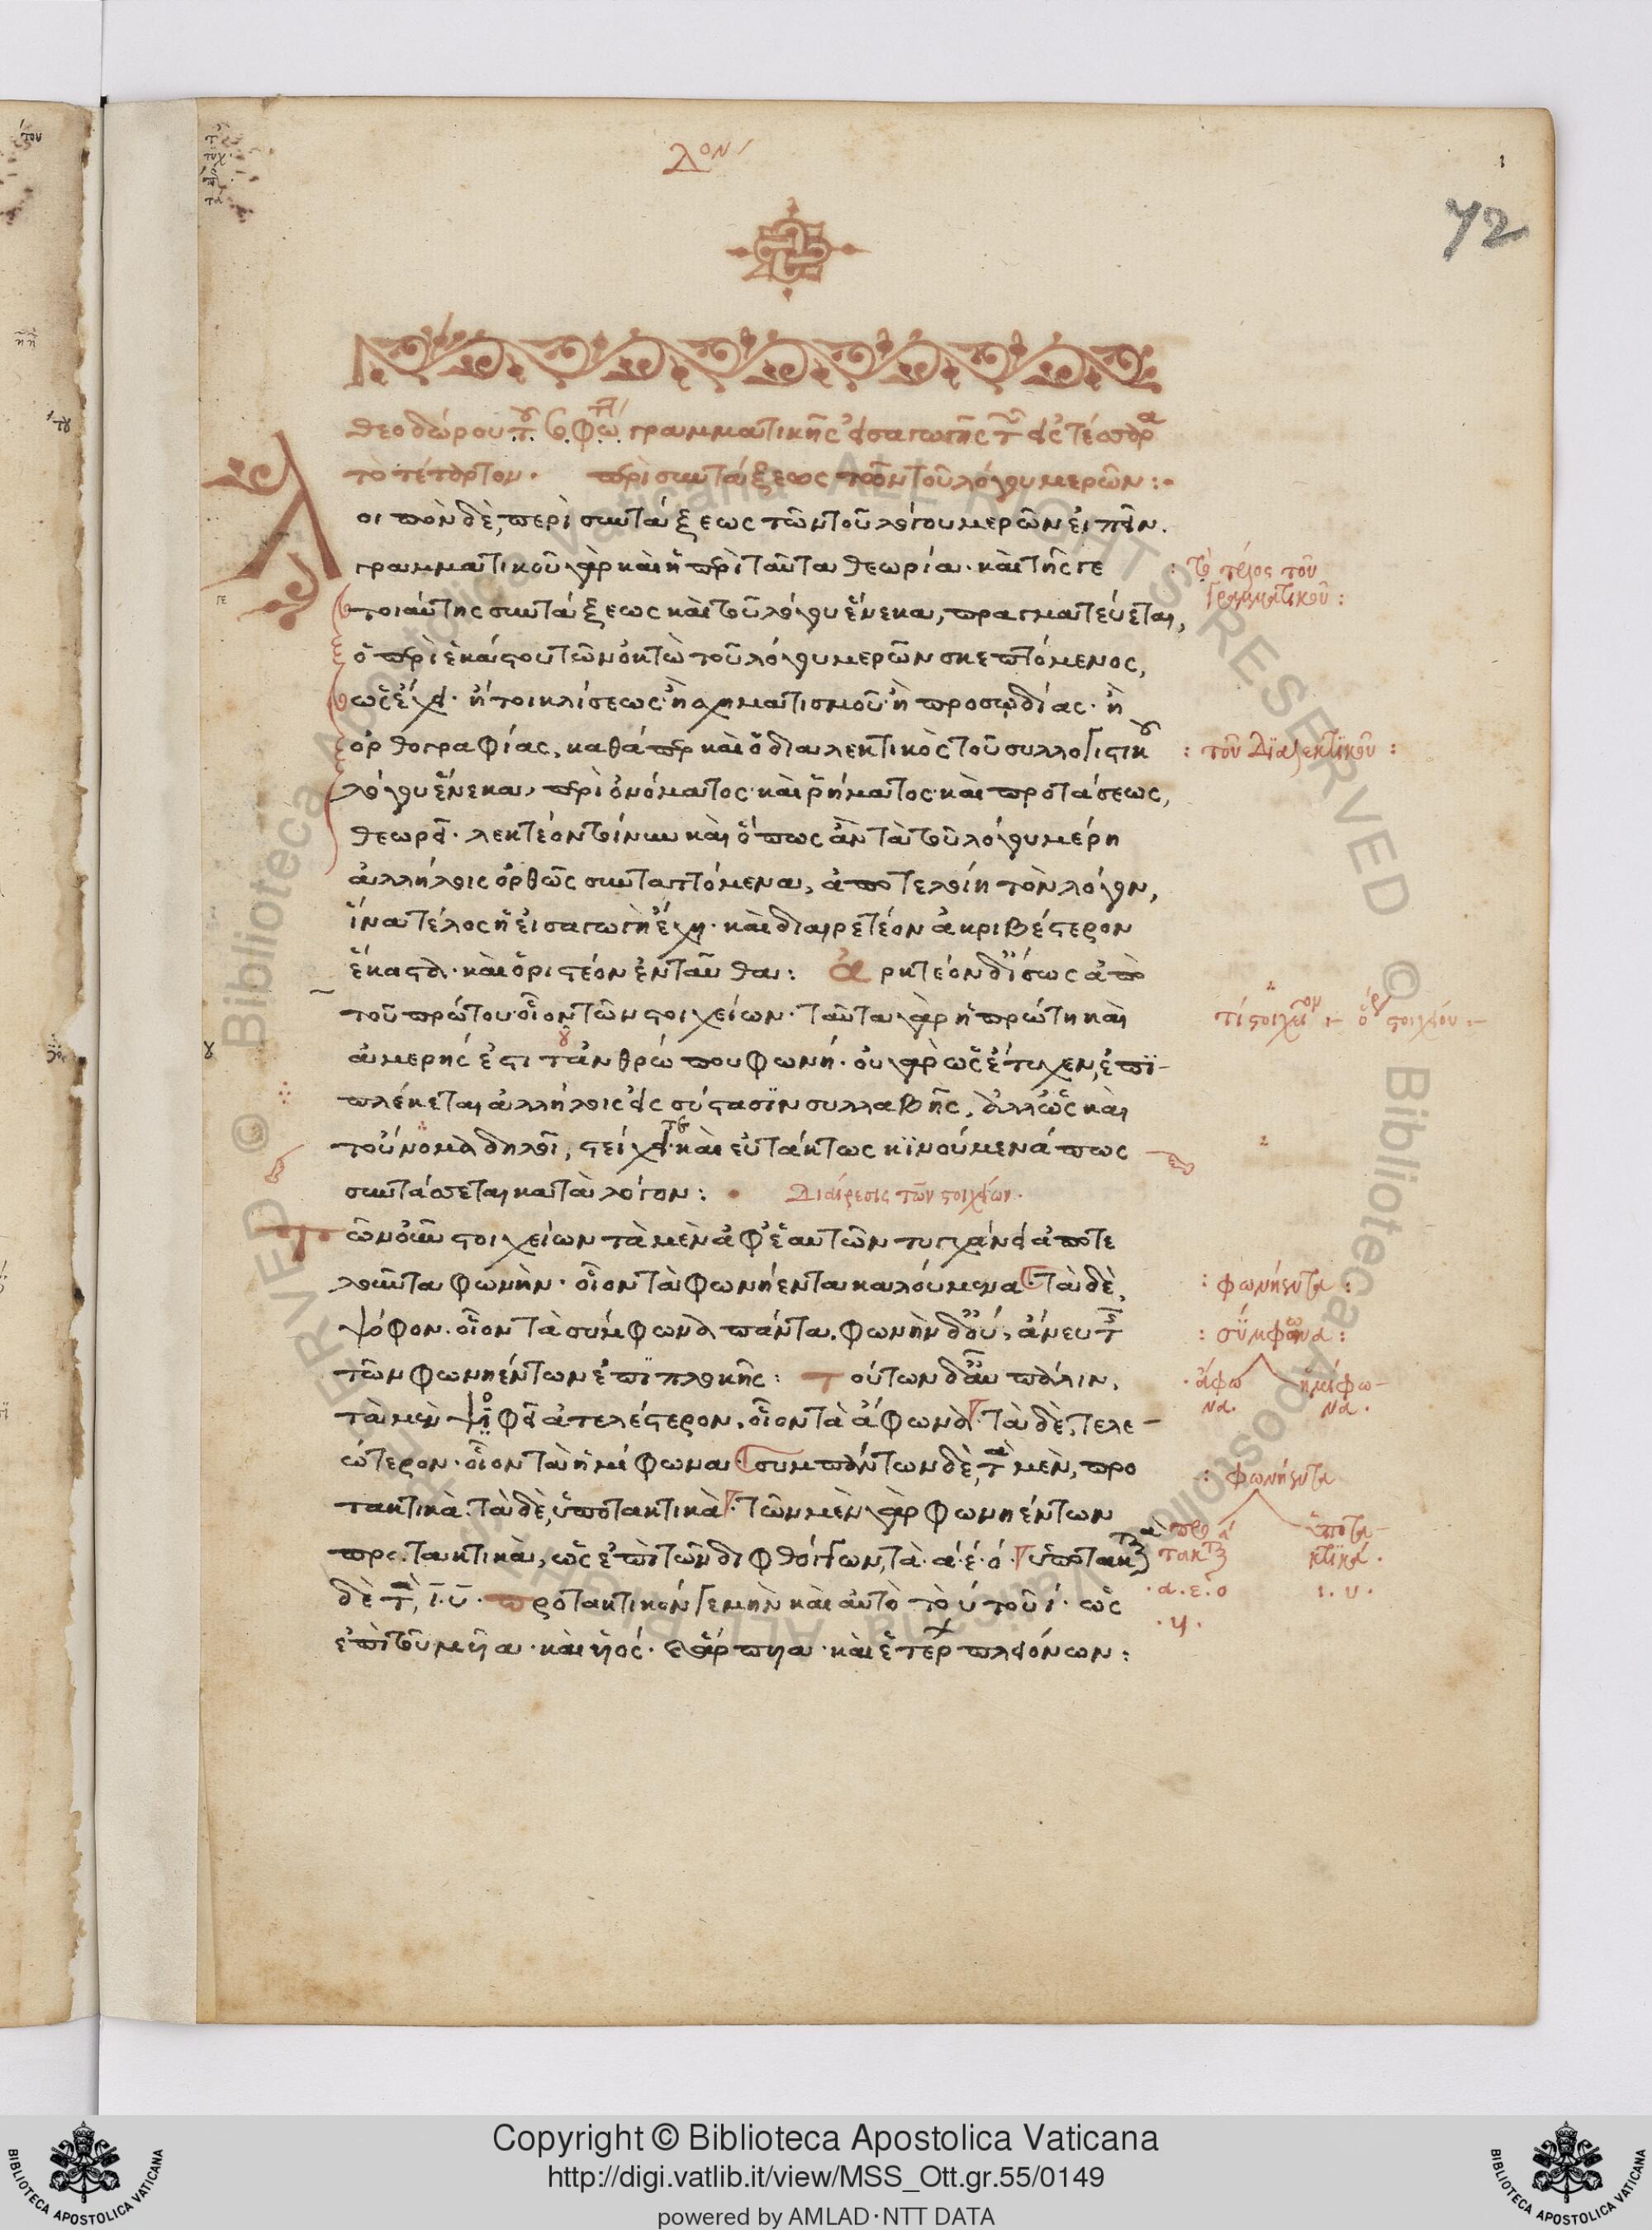 λον
1
72
θεοδώρου τοῦ σοφωτ γραμματικῆς εἰσαγωγῆς τῶν εἰς τέσσαρα
τὸ τέταρτον· περὶ συντάξεως τῶν τοῦ λόγου μερῶν:·
Λοιπὸν δὲ, περὶ συντάξεως τῶν τοῦ λόγου μερῶν εἰπεῖν.
γραμματικοῦ γὰρ καὶ ἡ περὶ ταῦτα θεωρία· καὶ τῆς γε
τοιαύτης συντάξεως καὶ τοῦ λόγου ἕνεκα, πραγματεύεται,
ὁ περὶ ἑκάστου τῶν ὀκτὼ τοῦ λόγου μερῶν σκεπτόμενος,
ὡς ἔχει· ἤτοι κλίσεως· ἢ σχηματισμοῦ· ἢ προσῳδίας· ἢ
ὀρθογραφίας, καθάπερ καὶ ὁ διαλεκτικὸς τοῦ συλλογιστικοῦ
λόγου ἕνεκα, περὶ ὀνόματος· καὶ ῥήματος· καὶ προτάσεως,
θεωρεῖ· λεκτέον τοίνυν καὶ ὅπως ἂν τὰ τοῦ λόγου μέρη
ἀλλήλοις ὀρθῶς συνταττόμενα, ἀποτελοίη τὸν λόγον,
ἵνα τέλος ἡ εἰσαγωγὴ ἔχῃ· καὶ διαιρετέον ἀκριβέστερον
ἕκαστα· καὶ ὁριστέον ἐνταῦθα: ἀρκτέον δ' ἴσως ἀπὸ
τοῦ πρώτου· οἷον τῶν στοιχείων· ταῦτα γὰρ ἡ πρώτη καὶ
ἀμερής ἐστι τοῦ ἀνθρώπου φωνή· οὐ γὰρ ὡς ἔτυχεν, ἐπι-
πλέκεται ἀλλήλοις εἰς σύστασϊν συλλαβῆς, ἀλλ' ὡς καὶ
τοὔνομα δηλοῖ, στείχει· καὶ εὐτάκτως κϊνούμενά πως
συντάσσεται κατὰ λόγον: · Διαίρεσις τῶν στοιχείων·
Τῶν οὖν στοιχείων τὰ μὲν ἀφ' ἑαυτῶν τυγχάνει ἀποτε
λοῦντα φωνὴν· οἷον τὰ φωνήεντα καλούμενα· τὰ δὲ,
ψόφον· οἷον τὰ σύμφωνα πάντα. φωνὴν δ' οὔ, ἄνευ τῆς
τῶν φωνηέντων ἐπιπλοκῆς: Τούτων δ' αὖ πάλιν,
τὰ μὲν ψοφεῖ ἀτελέστερον. οἷον τὰ ἄφωνα· τὰ δὲ, τελε-
ώτερον· οἷον τὰ ἡμίφωνα· συμπάντων δὲ, τὰ μὲν, προ
τακτικὰ. τὰ δὲ, ὑποτακτικὰ· τῶν μὲν γὰρ φωνηέντων
προτακτικὰ, ὡς ἐπὶ τῶν διφθόγγων, τὰ· ά· έ· ό· ὑποτακτικὰ
δὲ τὰ, ϊ· ϋ· Προτακτικόν γε μὴν καὶ αὐτὸ τὸ ύ τοῦ ί· ὡς
ἐπὶ τοῦ μυῖα· καὶ υἱός· ἅρπυια· καὶ ἑτέρων πλειόνων:
: Τὸ τέλος τοῦ
Γραμματικοῦ:
: τοῦ Διαλεκτϊκοῦ :
τί στοιχεῖον :- ὅρος στοιχείου :-
: φωνήεντα :
: σύμφωνα :
·ἄφω
να·
ἡμίφω-
να·
: φωνήεντα
προ
τακτικά
ὑποτα-
κτϊκά·
·α·ε·ο
ι·υ·
·υ·
Copyright © Biblioteca Apostolica Vaticana
http://digi.vatlib.it/view/MSS_Ott.gr.55/0149
powered by AMLAD·NTT DATA
BIBLIOTECA APOSTOLICA VATICANA
BIBLIOTECA APOSTOLICA VATICANA